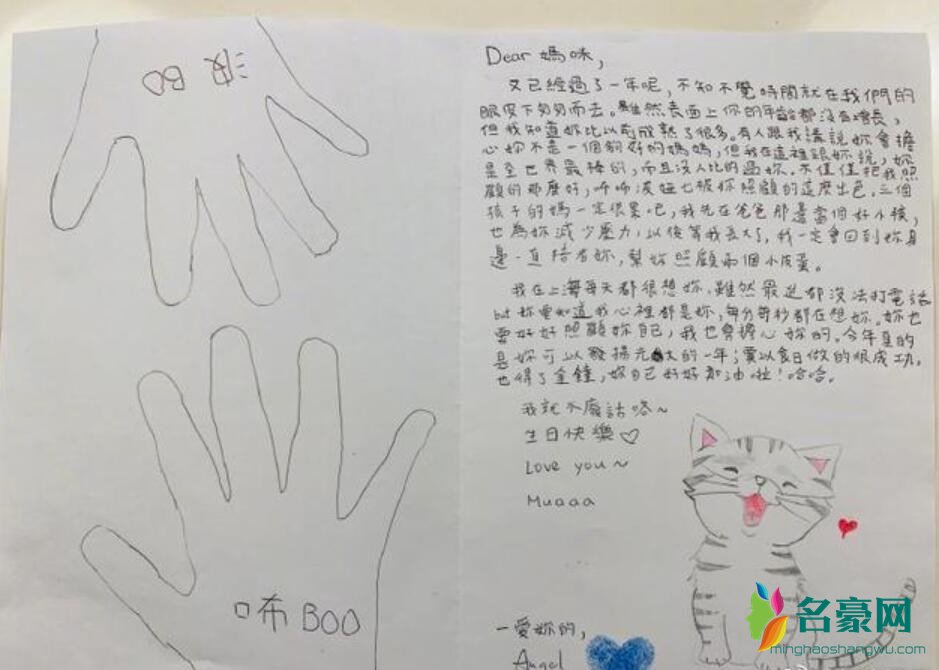 波BO
咘BOO
Dear 媽咪,
又已經過了一年呢，不知不覺時間就在我們的
眼皮下匆匆而去。雖然表面上你的年齡都沒有增長，
但我知道妳比以前成熟了很多。有人跟我講說妳會擔
心妳不是一個夠好的媽媽，但我在這裡跟妳說，妳
是全世界最棒的，而且沒人比的過妳。不僅僅把我照
顧的那麼好，咘咘波妞也被你照顧的這麼出色。三個
孩子的媽一定很累吧，我先在爸爸那邊當個好小孩，
也為妳減少壓力，以後等我長大了，我一定會回到妳身
邊一直陪着妳，幫妳照顧兩個小皮蛋。
我在上海每天都很想妳，雖然最近都沒法打電話
but 妳要知道我心裡都是妳，每分每秒都在想妳。妳也
要好好照顧妳自己，我也會擔心妳的。今年真的
是妳可以發揚光大的一年；賈以食日做的很成功，
也得了金鐘，妳自己好好加油啦！哈哈。
我就不廢話咯~
生日快樂♡
Love you~
Muaaa
一愛妳的，
Angel
名豪网
minghaoshangwu.com